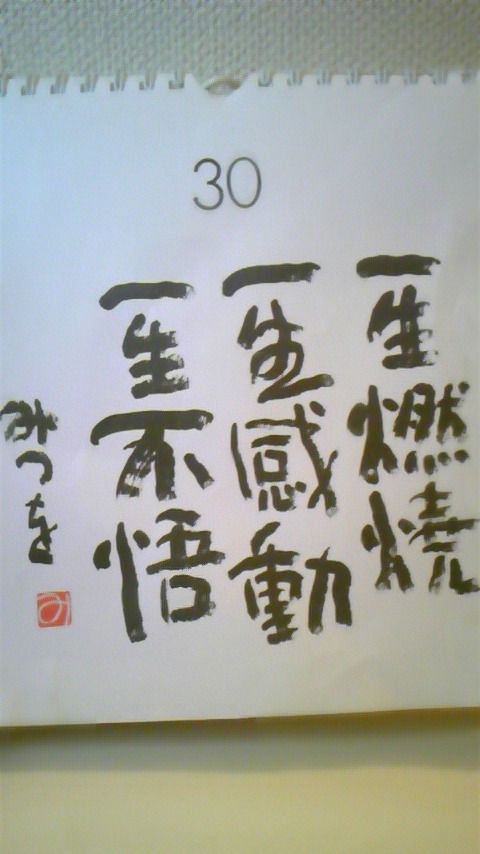 30
一生燃焼
一生感動
一生不悟
みつを
み